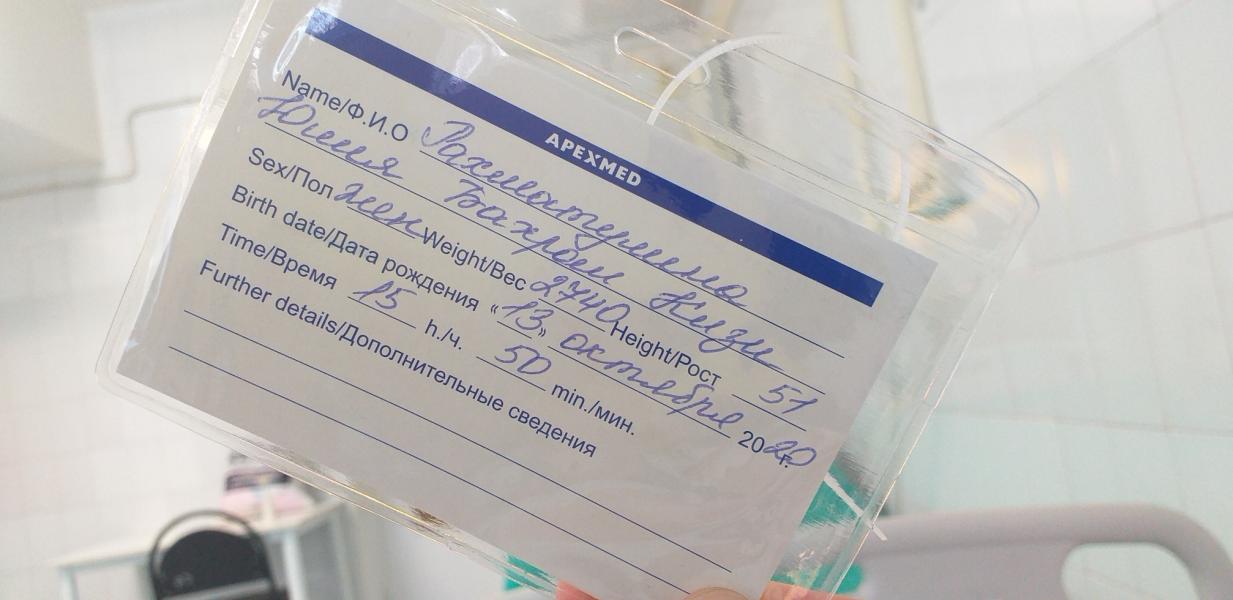 APEXMED
Name/Ф.И.О Рахматулина
Юлия Бахром кизи
Sex/Пол жен Weight/Вес 2740 Height/Рост 51
Birth date/Дата рождения “13„ октября 2020 г.
Time/Время 15 h./ч. 50 min./мин.
Further details/Дополнительные сведения